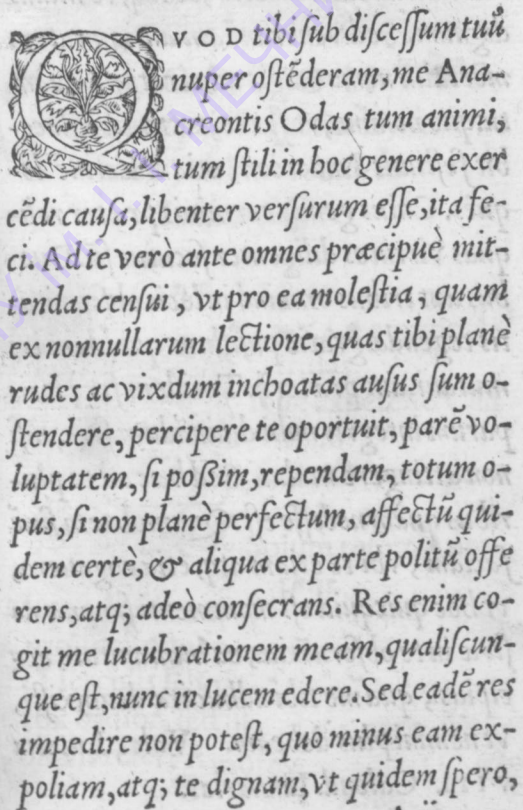 QVOD tibi ſub diſceſſum tuũ
nuper oſtẽderam, me Ana-
creontis Odas tum animi,
tum ſtili in hoc genere exer
cẽdi cauſa, libenter verſurum eſſe, ita fe-
ci. Ad te verò ante omnes præcipuè mit-
tendas cenſui, vt pro ea moleſtia, quam
ex nonnullarum lectione, quas tibi planè
rudes ac vixdum inchoatas auſus ſum o-
ſtendere, percipere te oportuit, parẽ vo-
luptatem, ſi poßim, rependam, totum o-
pus, ſi non planè perfectum, affectũ qui-
dem certè, & aliqua ex parte politũ offe
rens, atq; adeò conſecrans. Res enim co-
git me lucubrationem meam, qualiſcun-
que eſt, nunc in lucem edere. Sed eadẽ res
impedire non poteſt, quo minus eam ex-
poliam, atq; te dignam, vt quidem ſpero,